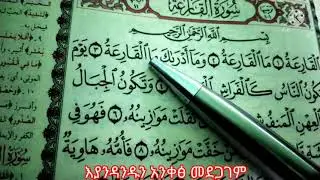 سُورَةُ القَارِعَةِ
بِسْمِ اللَّهِ الرَّحْمَٰنِ الرَّحِيمِ
القَارِعَةُ ١ مَا القَارِعَةُ ٢ وَمَا أَدْرَىٰكَ مَا القَارِعَةُ ٣ يَوْمَ
يَكُونُ النَّاسُ كَالْفَرَاشِ وَتَكُونُ الْجِبَالُ
كَالْعِهْنِ الْمَنْفُوشِ ثَقُلَتْ مَوَٰزِينُهُ ٦ فَهُوَ فِي
خَفَّتْ مَوَٰزِينُهُ ٨ فَأُمُّهُ هَاوِيَةٌ
እያንዳንዱን አንቀፅ መደጋገም